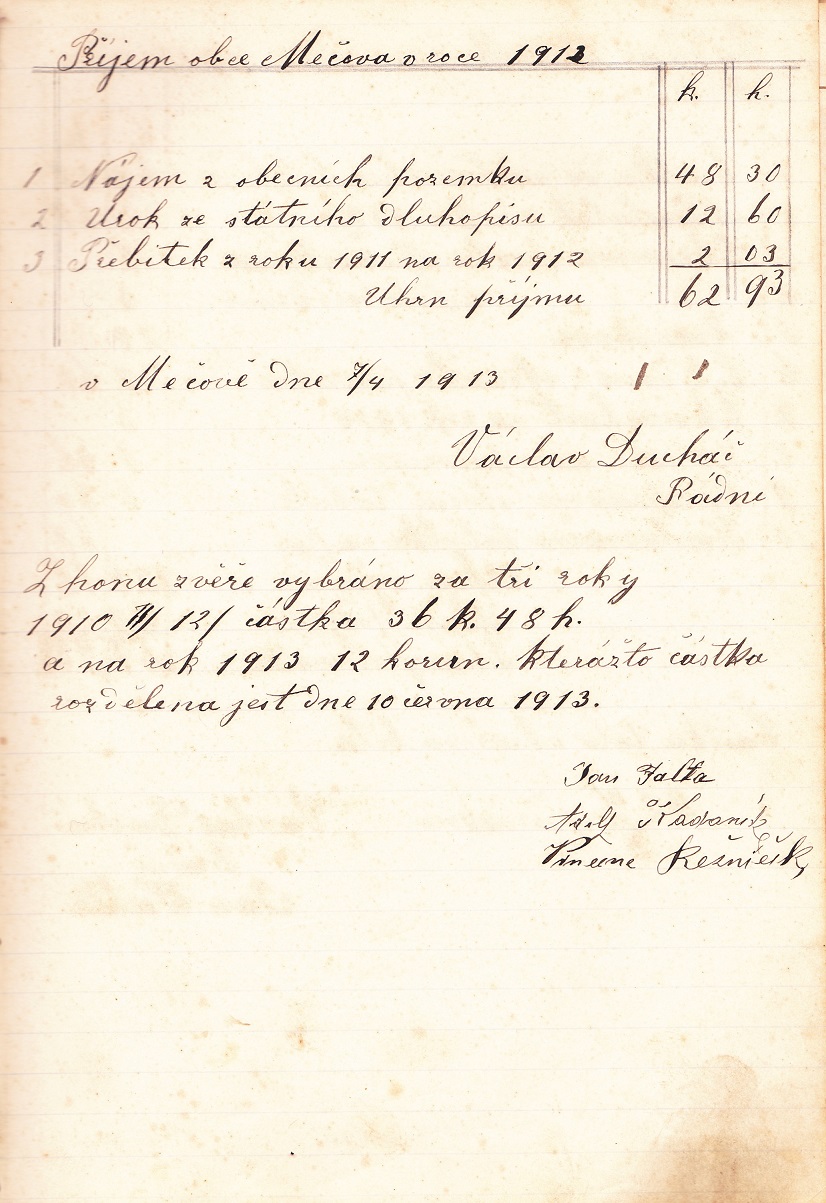 Příjem obce Mečova v roce 1912
k. h.
1 Nájem z obecních pozemku 48 30
2 Urok ze státního dluhopisu 12 60
3 Přebitek z roku 1911 na rok 1912 2 03
Uhrn příjmu 62 93
v Mečově dne 7/4 1913
Václav Ducháč
Rádní
Z honu zvěře vybráno za tři roky
1910 11/ 12/ částka 36 k. 48 h.
a na rok 1913 12 korun. kterážto částka
rozdělena jest dne 10 června 1913.
Jan Falta
Adolf
Řezníček